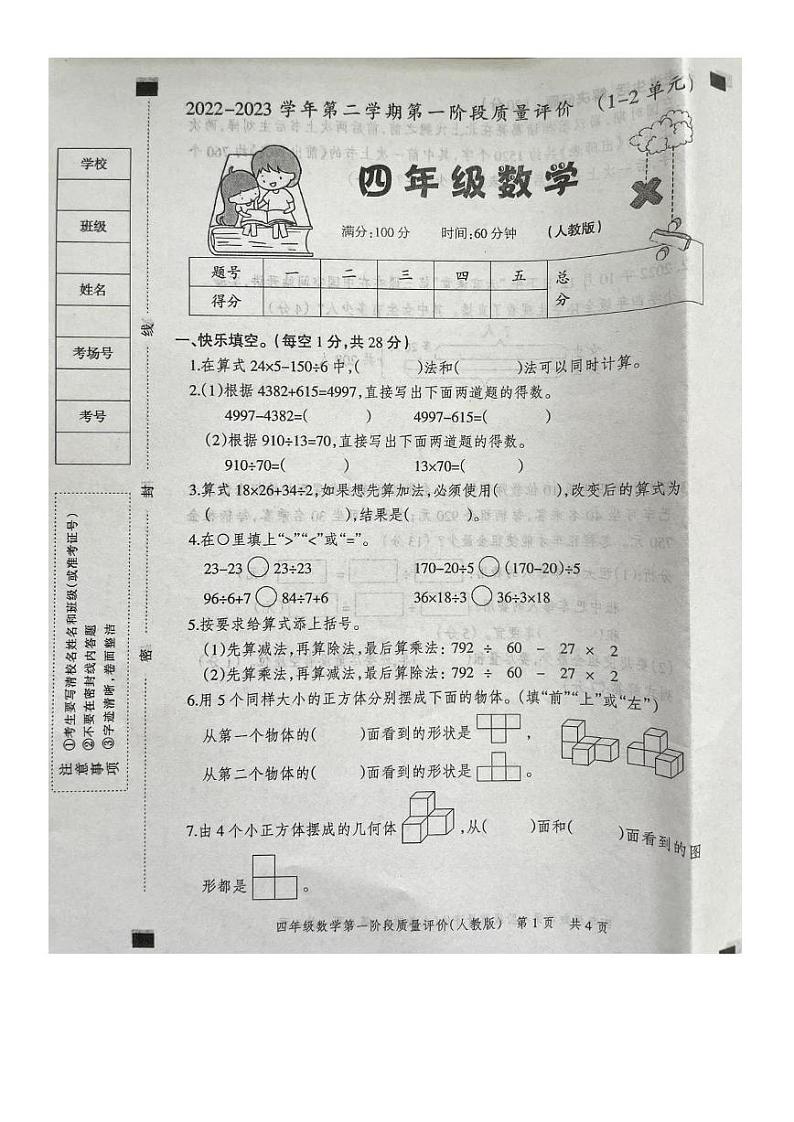 2022-2023 学年第二学期第一阶段质量评价 (1-2 单元)
四年级数学
满分:100 分 时间:60 分钟 (人教版)
题号 一 二 三 四 五 总分
得分
学校
班级
姓名
考场号
考号
线
封
密
注意事项
①考生要写清校名姓名和班级(或准考证号)
②不要在密封线内答题
③字迹清晰,卷面整洁
一、快乐填空。(每空 1 分,共 28 分)
1.在算式 24×5-150÷6 中,( )法和( )法可以同时计算。
2.(1)根据 4382+615=4997,直接写出下面两道题的得数。
4997-4382=( ) 4997-615=( )
(2)根据 910÷13=70,直接写出下面两道题的得数。
910÷70=( ) 13×70=( )
3.算式 18×26+34÷2,如果想先算加法,必须使用( ),改变后的算式为
( ),结果是( )。
4.在○里填上“>”“<”或“=”。
23-23 ○ 23÷23 170-20÷5 ○ (170-20)÷5
96÷6+7 ○ 84÷7+6 36×18÷3 ○ 36÷3×18
5.按要求给算式添上括号。
(1)先算减法,再算除法,最后算乘法: 792 ÷ 60 - 27 × 2
(2)先算乘法,再算减法,最后算除法: 792 ÷ 60 - 27 × 2
6.用 5 个同样大小的正方体分别摆成下面的物体。(填“前”“上”或“左”)
从第一个物体的( )面看到的形状是 ,
从第二个物体的( )面看到的形状是 。
7.由 4 个小正方体摆成的几何体 ,从( )面和( )面看到的图
形都是 。
四年级数学第一阶段质量评价(人教版) 第 1 页 共 4 页